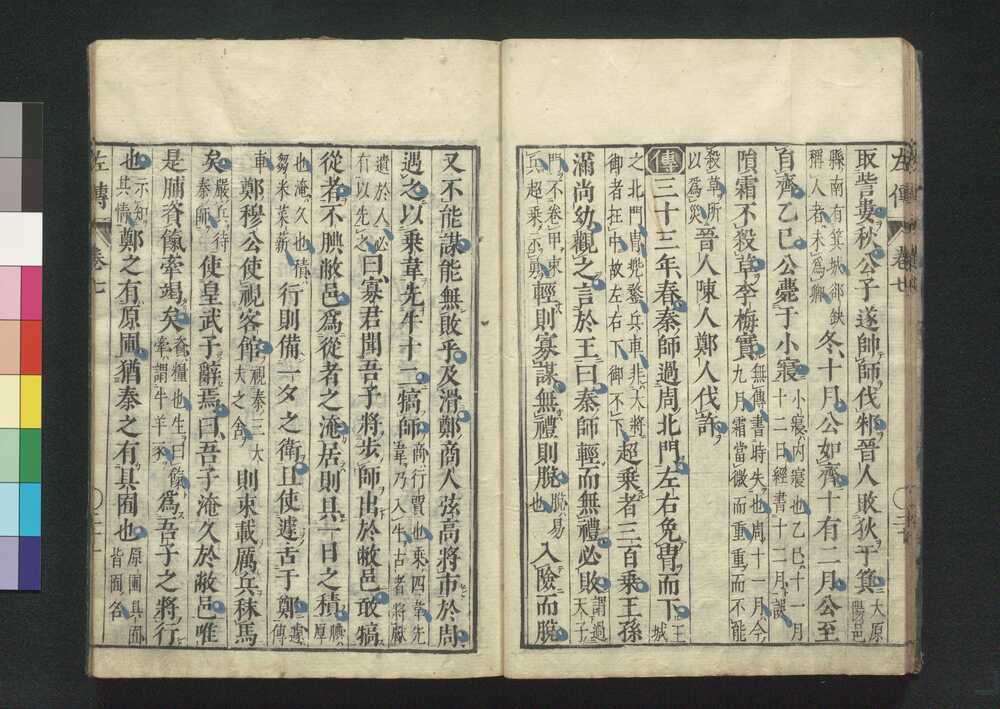 取訾婁秋公子遂帥師伐邾晉人敗狄于箕大原陽邑
縣南有箕城郤缺稱人者未爲卿冬十月公如齊十有二月公至
自齊乙巳公薨于小寢小寢内寢也乙巳十一月十二日經書十二月誤
隕霜不殺草李梅實無傳書時失也周十一月今九月霜當微而重重而不能
殺草所以爲災晉人陳人鄭人伐許
傳三十三年春秦師過周北門左右免冑而下王城
之北門冑兜鍪兵車非大將御者在中故左右下御不下超乘者三百乘王孫
滿尚幼觀之言於王曰秦師輕而無禮必敗謂過天子
門不卷甲束兵超乘示勇輕則寡謀無禮則脫脫易也入險而脫
左傳 卷七
又不能謀能無敗乎及滑鄭商人弦高將市於周
遇之以乘韋先牛十二犒師商行賈也乘四韋先韋乃入牛古者將獻
遺於人必有以先之曰寡君聞吾子將步師出於敝邑敢犒
從者不腆敝邑爲從者之淹居則具一日之積腆厚
也淹久也積芻米菜薪行則備一夕之衛且使遽告于鄭遽傳
車鄭穆公使視客館視秦三大夫之舍則束載厲兵秣馬
矣嚴兵待秦師使皇武子辭焉曰吾子淹久於敝邑唯
是脯資餼牽竭矣資糧也生曰餼牽謂牛羊豕爲吾子之將行
也示知其情鄭之有原圃猶秦之有具囿也原圃具囿皆囿名
左傳 卷七